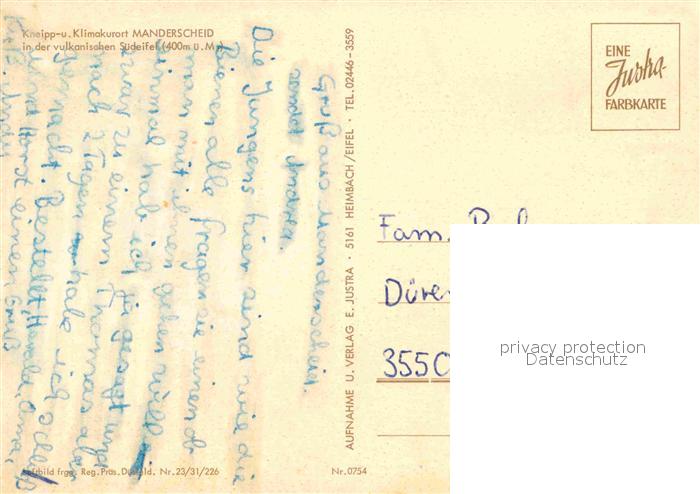 Kneipp-u. Klimakurort MANDERSCHEID
in der vulkanischen Südeifel (400m ü.M.)
Gruß aus Manderscheid.
Die Jungens hier sind wie die
Bienen alle fragen sie einen ob
man mit ihnen gehen will
einmal hab ich ja gesagt und
zwar zu einem Thomas aber
nach 2 Tagen habe ich
Schluß gemacht. Bestellt
Horst einen Gruß
AUFNAHME U. VERLAG E. JUSTRA · 5161 HEIMBACH/EIFEL · TEL. 02446-3559
EINE
Justra-
FARBKARTE
Fam.
Düre
3550
privacy protection
Datenschutz
Luftbild frgg. Reg. Präs. Düsseld. Nr. 23/31/226
Nr. 0754